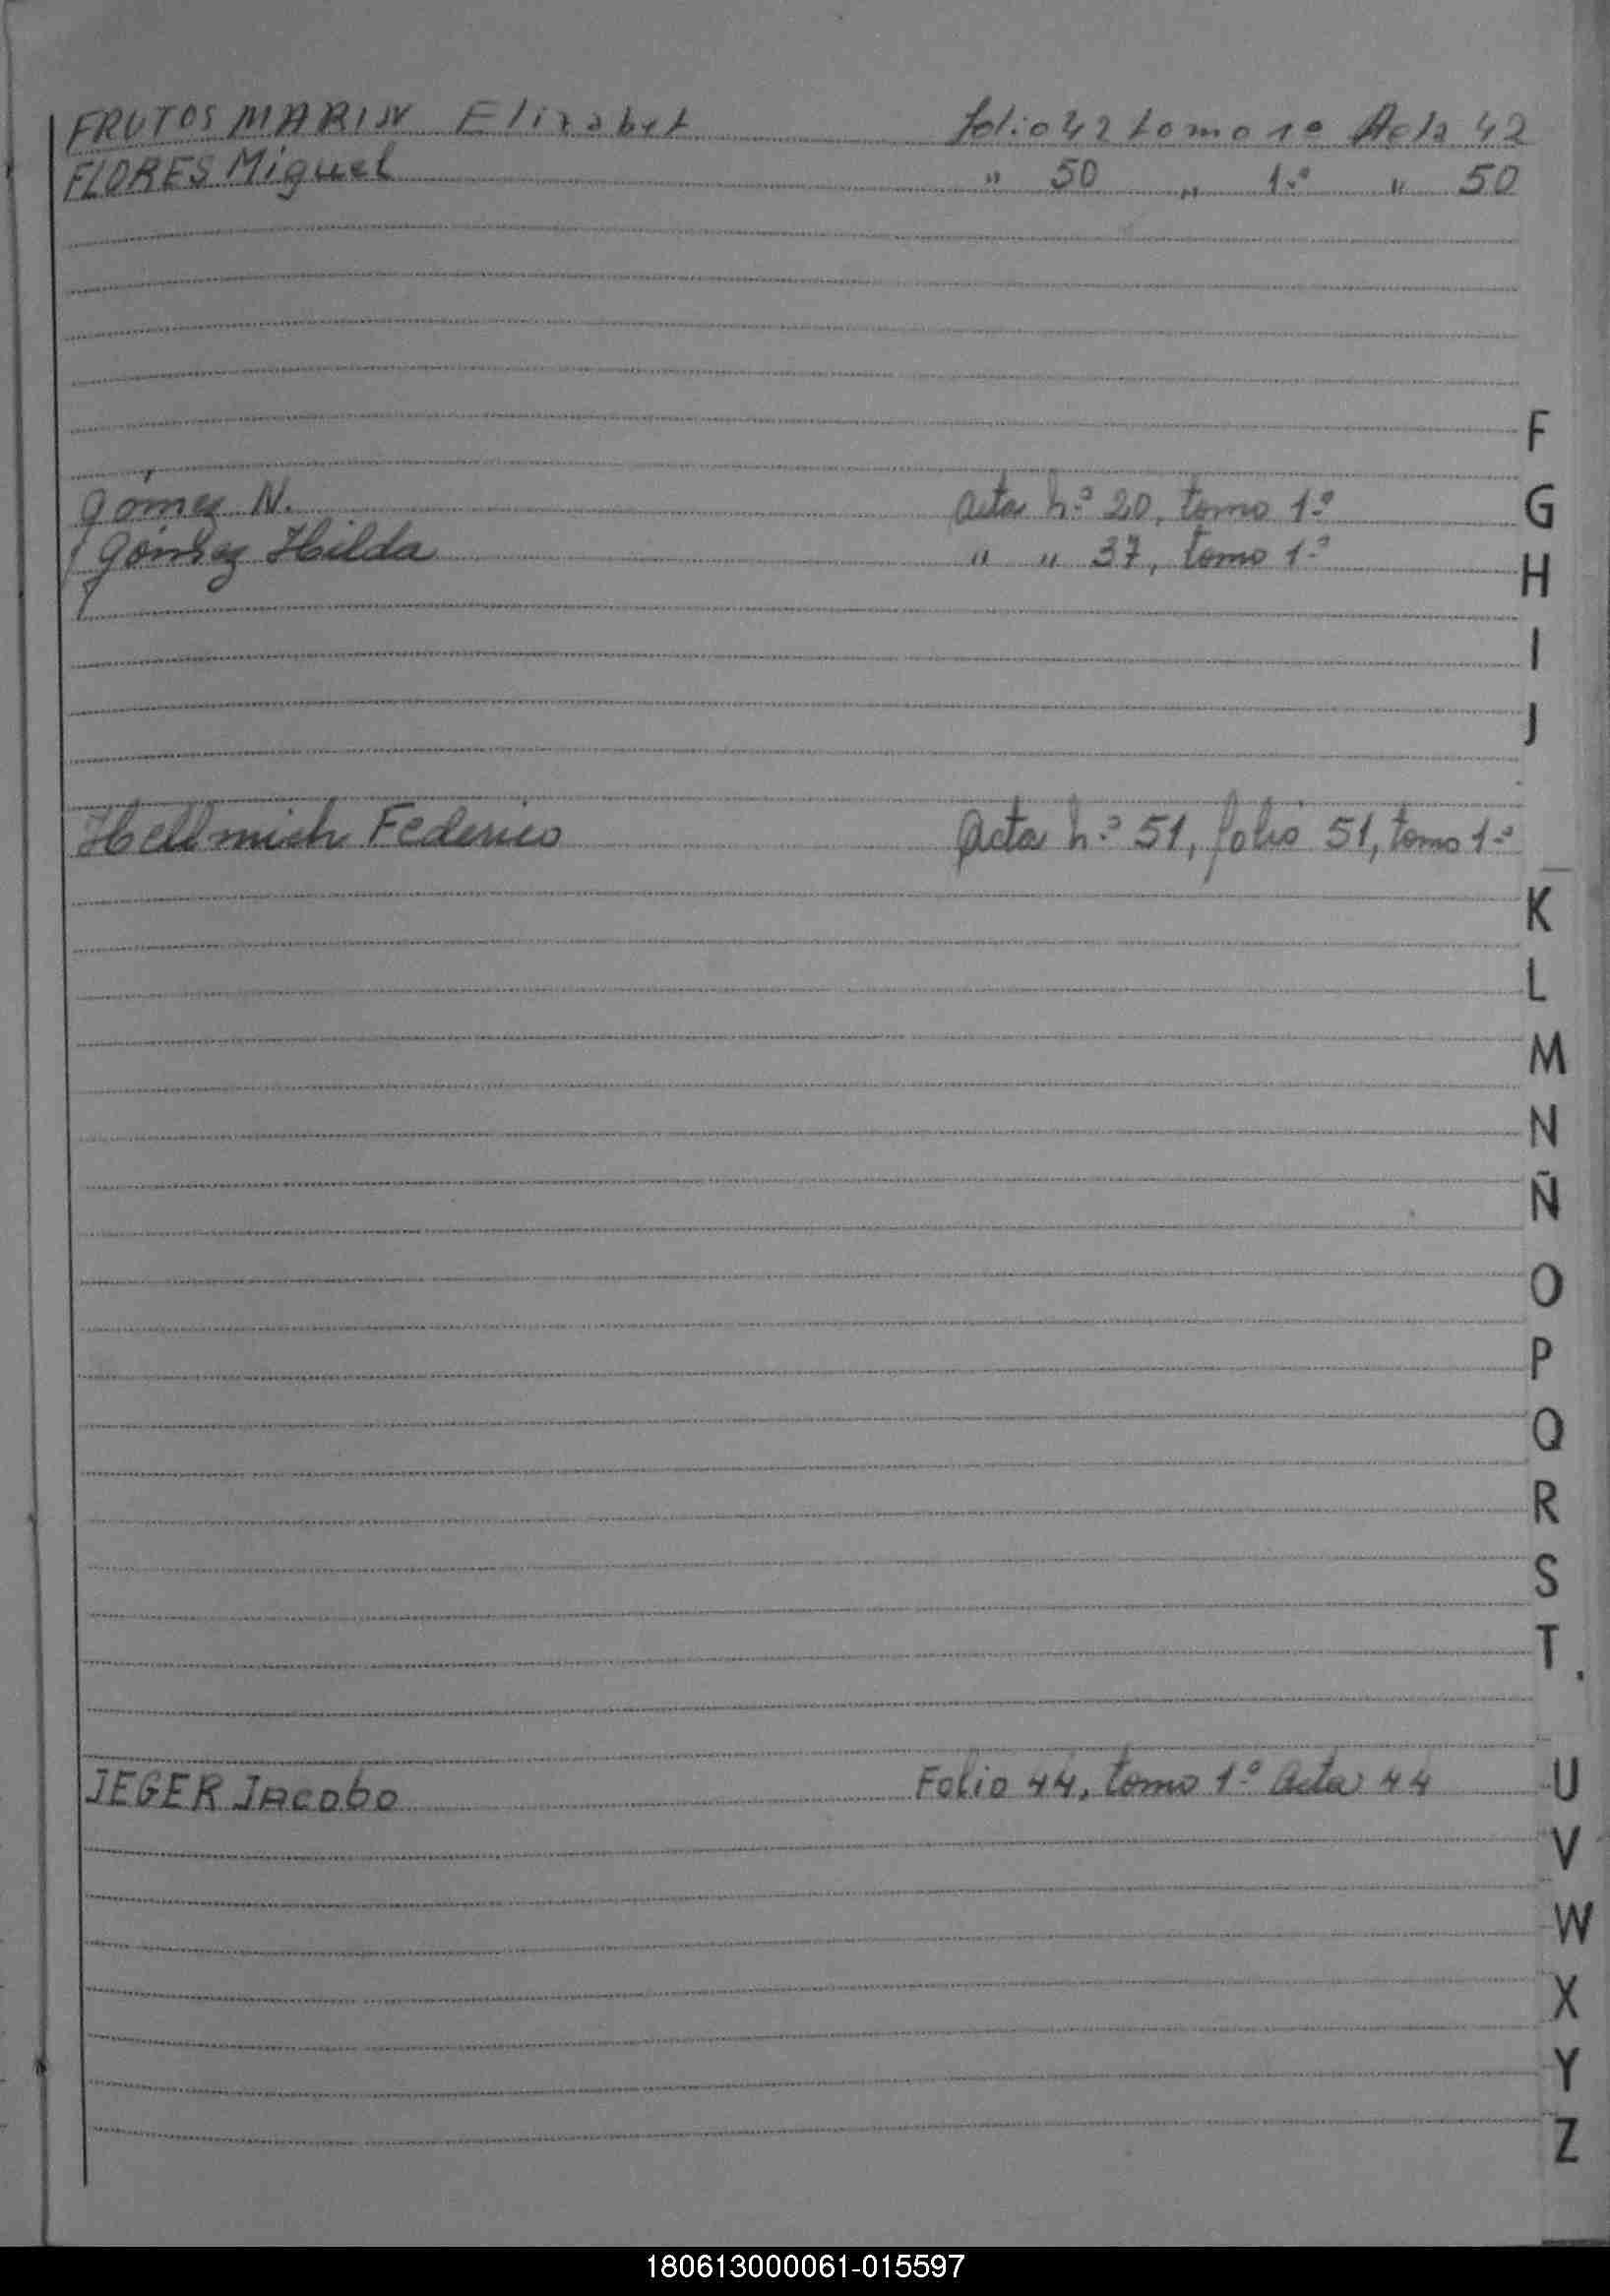 FRUTOS MARIN Elizabet folio 42 tomo 1º Acta 42
FLORES Miguel " 50 " 1.º " 50
F
Gomez N. acta n.º 20, tomo 1.º
G
Gomez Hilda " " 37, tomo 1.º
H
I
J
Hellmich Federico Acta n.º 51, folio 51, tomo 1.º
K
L
M
N
Ñ
O
P
Q
R
S
T
JEGER Jacobo Folio 44, tomo 1.º Acta 44
U
V
W
X
Y
Z
180613000061-015597